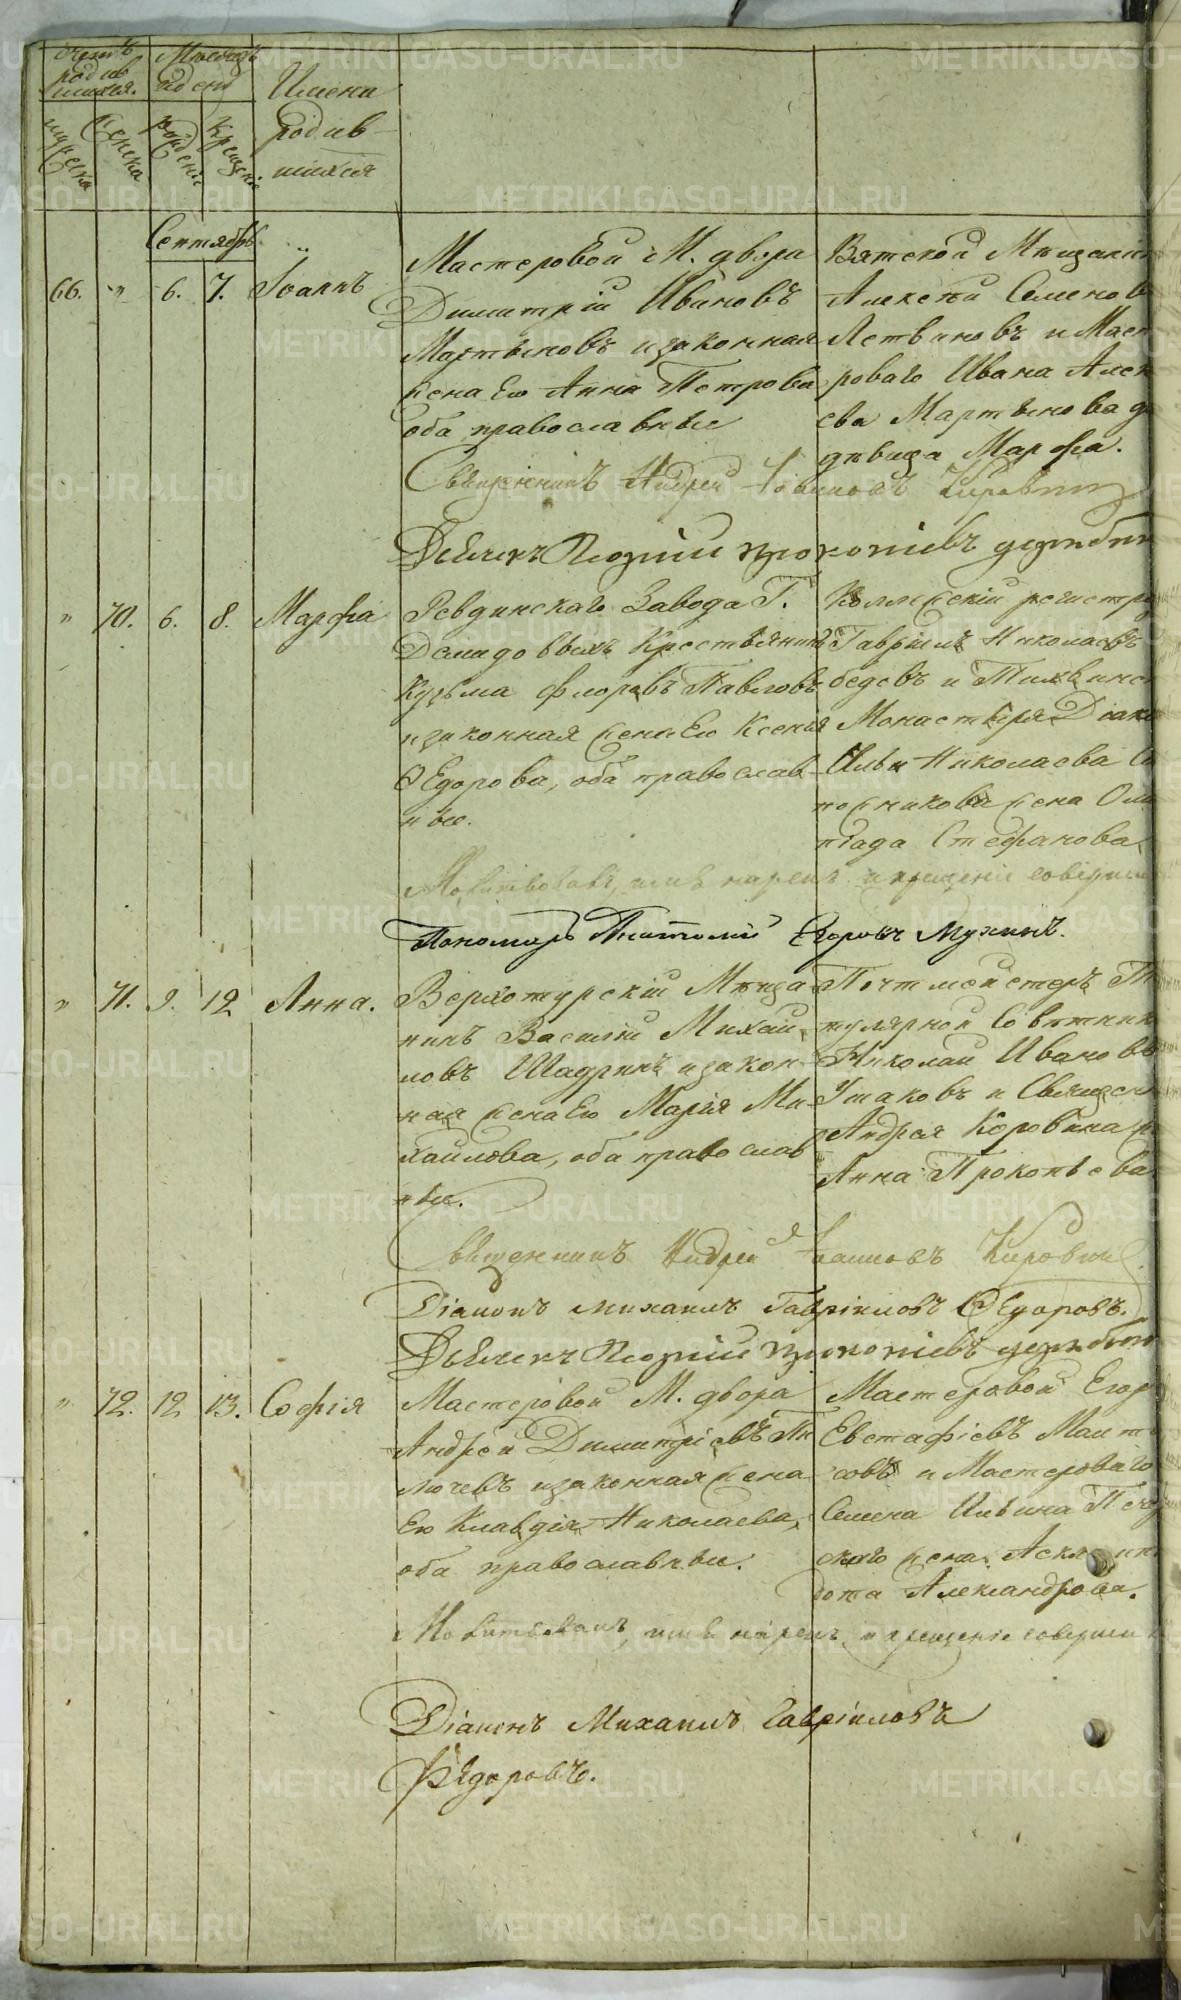 Счетъ родив шихся.
Мѣсяцъ и день
Имена родив шихся
мужеска
женска
рожденiя
крещенiя
Сентябрь
66. " 6. 7. Iоаннъ
Мастеровой М. двора
Димитрiй Ивановъ
Мартыновъ и законная
жена Его Анна Петрова
оба православные
Вятской Мѣщанин
Алексѣй Семенов
Летвиновъ и Маст
роваго Ивана Алек
сѣва Мартынова до
дѣвица Марѳа.
Священникъ Андрей Iоанновъ
Дьячекъ прокопiевъ
" 70. 6. 8. Марѳа
Ревдинскаго Завода Г.
Демидовыхъ Крестьянинъ
Кузьма Флоровъ Павловъ
и законная жена Его Ксенiя
Ѳедорова, оба православ
ные.
Коллежскiй регистра
Гаврiилъ Николаевъ
бедевъ и Тихвинс
Монастыря Дiако
Ильи Николаева Са
пожникова жена Оли
пiада Стефанова
Молитвовалъ, имя нарекъ и крещенiе соверши
Пономарь Анатолiй Егоровъ Мухинъ.
" 71. 9. 12 Анна.
Верхотурскiй Мѣща
нинъ Василiй Михай
ловъ Шадринъ и закон
ная жена Его Марiя Ми
хайлова, оба православ
ные.
Почтмейстеръ Ти
тулярной Совѣтник
Николай Ивановъ
Ушаковъ и Священ
Андрея Коровина ж
Анна Прокопьева
Священникъ Андрей Iоанновъ
Дiаконъ Михаилъ Гаврiиловъ Ѳедоровъ.
Дьячекъ прокопiевъ
" 72. 12 13. Софiя
Мастеровой М. двора
Андрей Димитрiевъ Пи
лючевъ и законная жена
Его Клавдiя Николаева,
оба православные.
Мастеровой Егор
Евстафiевъ Маит
совъ и Мастероваго
Семена Ильина Пе
скаго жена
Александрова.
Молитвовалъ, имя нарекъ и крещенiе соверши
Дiаконъ Михаилъ Гаврiиловъ
Ѳедоровъ.
METRIKI.GASO-URAL.RU